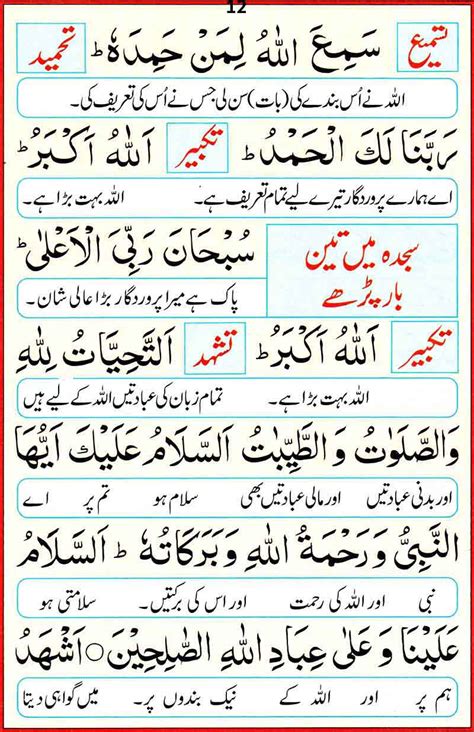 12
تسمیع سَمِعَ اللهُ لِمَنْ حَمِدَهٗ ؕ تحمید
اللہ نے اُس بندے کی (بات) سن لی جس نے اُس کی تعریف کی۔
رَبَّنَا لَكَ الْحَمْدُ ؕ تکبیر اَللهُ اَكْبَرُ ؕ
اے ہمارے پروردگار تیرے لیے تمام تعریف ہے۔ اللہ بہت بڑا ہے۔
سجدہ میں تین بار پڑھے سُبْحَانَ رَبِّيَ الْاَعْلٰى ؕ
پاک ہے میرا پروردگار بڑا عالی شان۔
تکبیر اَللهُ اَكْبَرُ ؕ تشہد اَلتَّحِيَّاتُ لِلّٰهِ
اللہ بہت بڑا ہے۔ تمام زبان کی عبادتیں اللہ کے لیے ہیں
وَالصَّلَوٰتُ وَالطَّيِّبٰتُ اَلسَّلَامُ عَلَيْكَ اَيُّهَا
اور بدنی عبادتیں اور مالی عبادتیں بھی سلام ہو تم پر اے
النَّبِيُّ وَرَحْمَةُ اللهِ وَبَرَكَاتُهٗ ؕ اَلسَّلَامُ
نبی اور اللہ کی رحمت اور اس کی برکتیں۔ سلامتی ہو
عَلَيْنَا وَعَلٰى عِبَادِ اللهِ الصّٰلِحِيْنَ ○ اَشْهَدُ
ہم پر اور اللہ کے نیک بندوں پر۔ میں گواہی دیتا